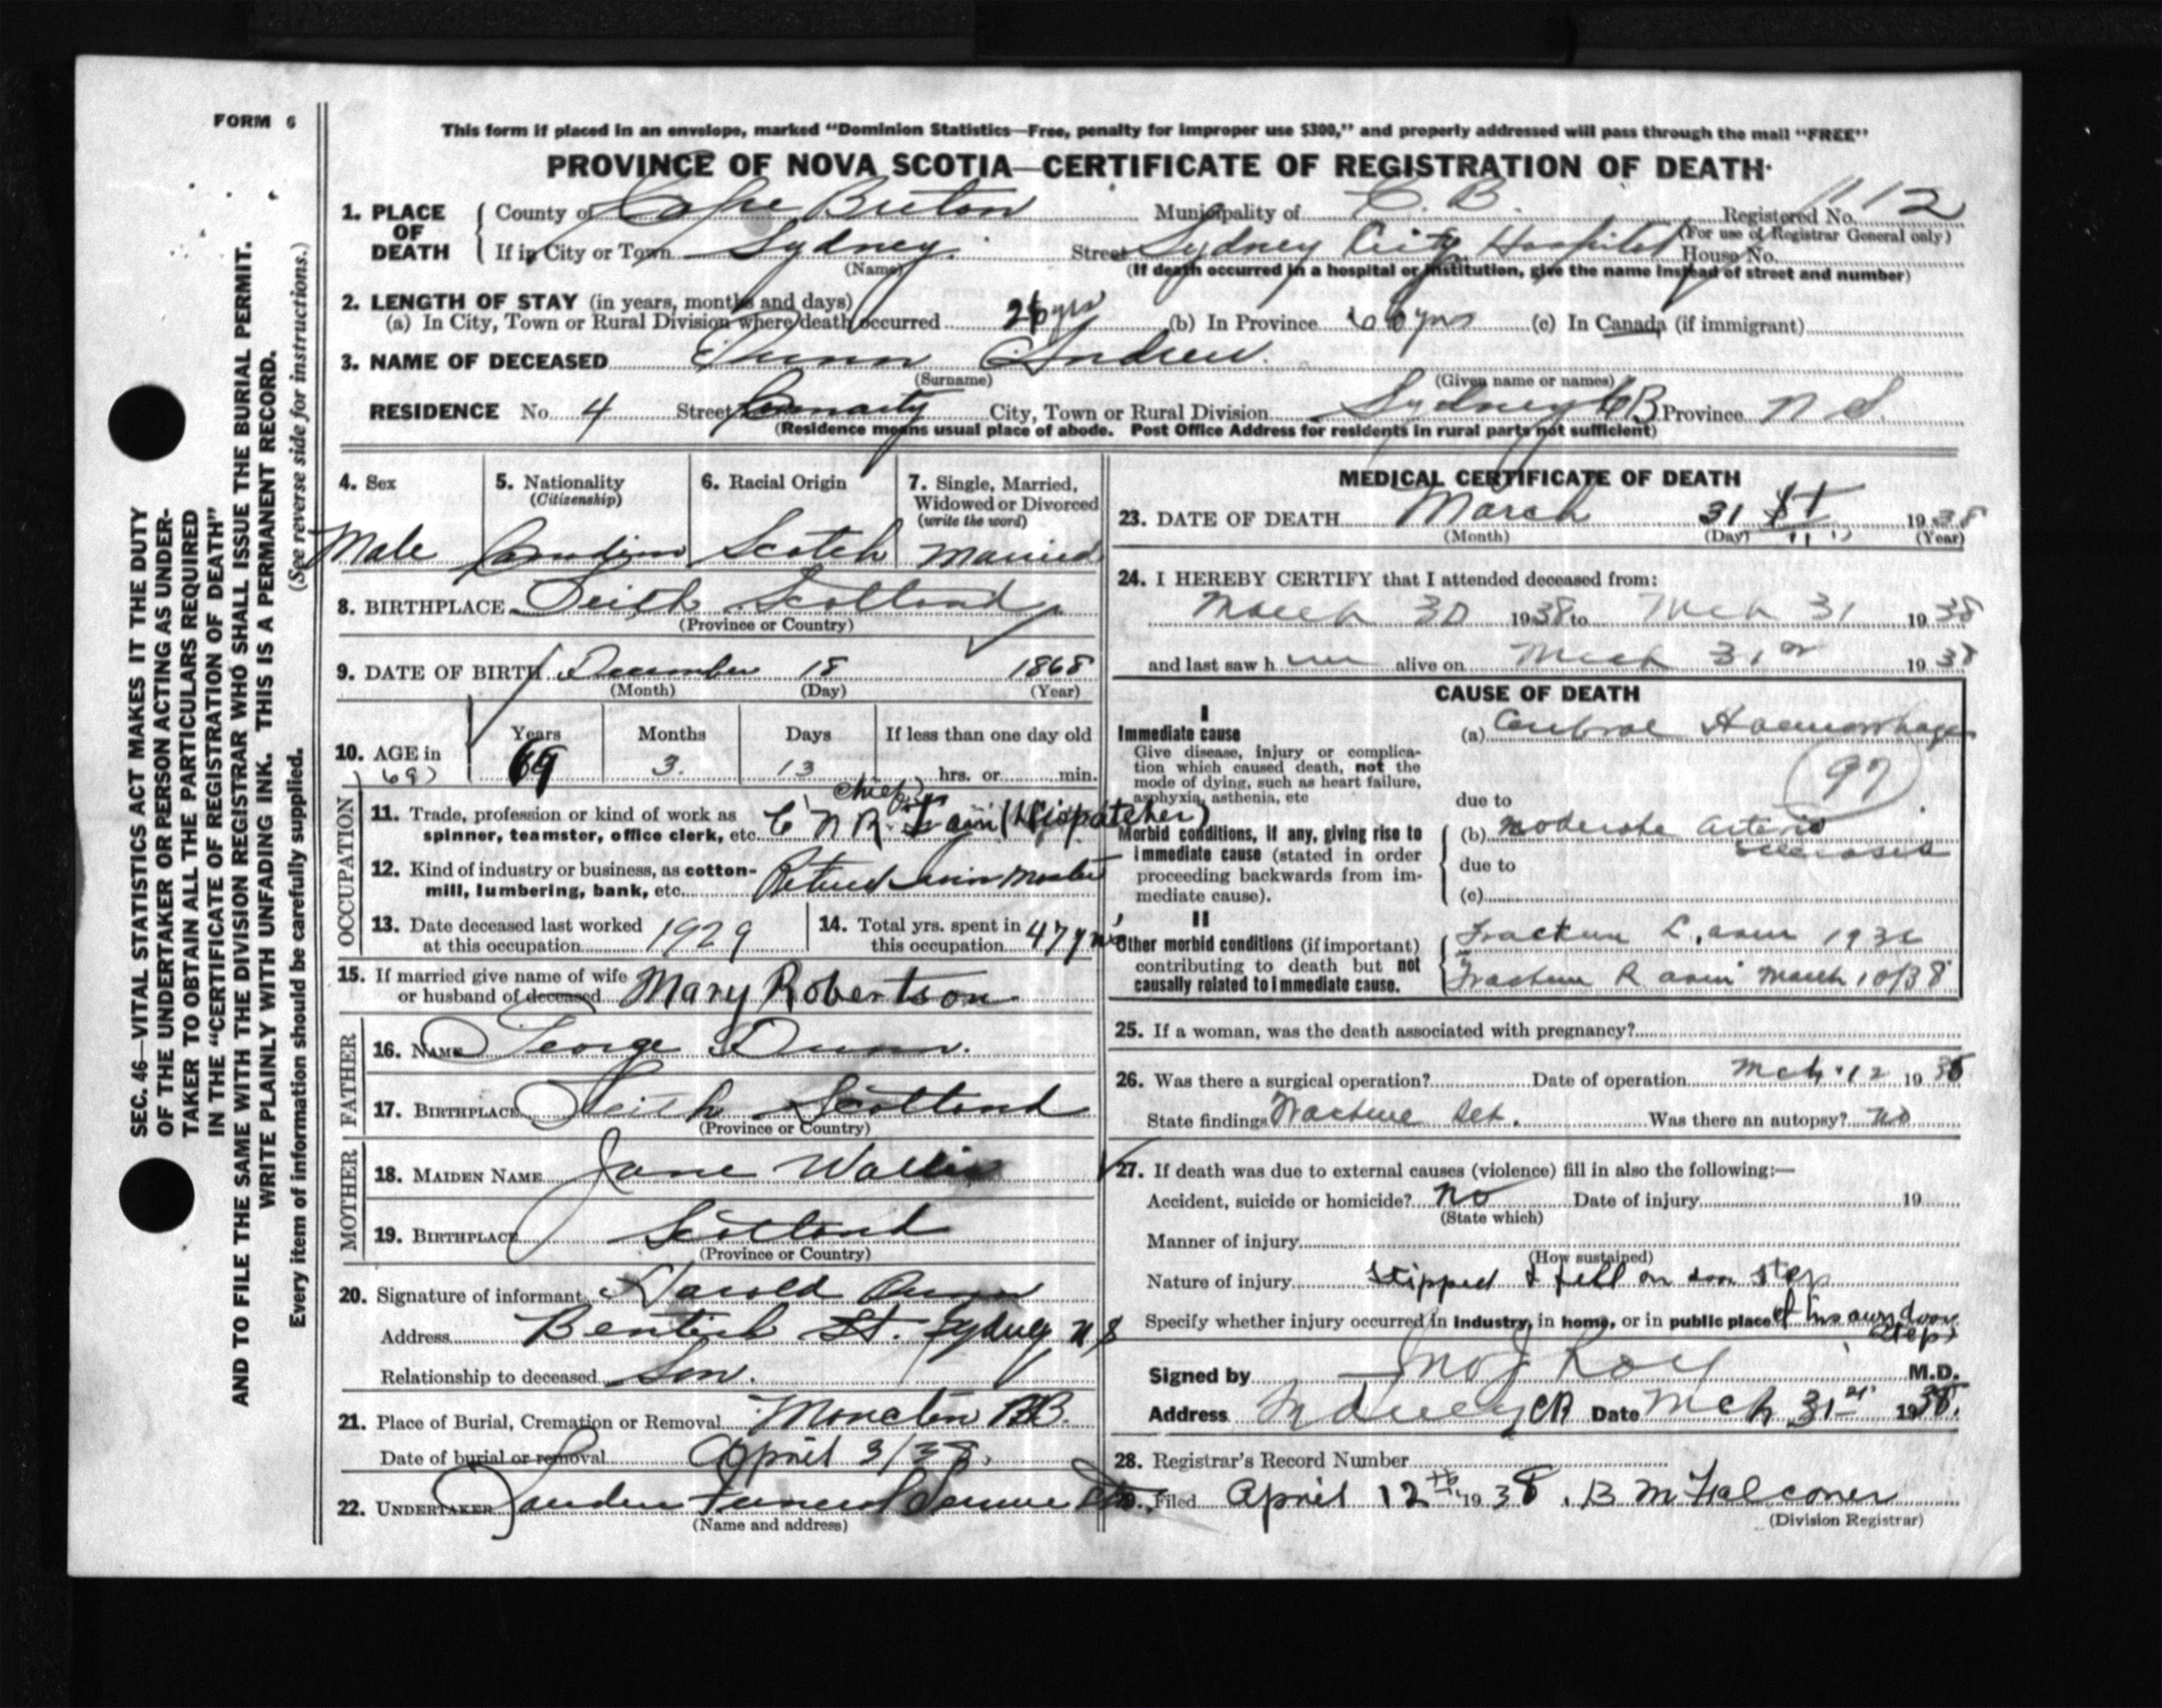 FORM 6
This form if placed in an envelope, marked "Dominion Statistics—Free, penalty for improper use $300," and properly addressed will pass through the mail "FREE"
PROVINCE OF NOVA SCOTIA—CERTIFICATE OF REGISTRATION OF DEATH
1. PLACE OF DEATH { County of Cape Breton Municipality of C. B. Registered No. 1112
(For use of Registrar General only)
If in City or Town Sydney. Street Sydney City Hospital House No.
(Name) (If death occurred in a hospital or institution, give the name instead of street and number)
2. LENGTH OF STAY (in years, months and days)
(a) In City, Town or Rural Division where death occurred 26 yrs (b) In Province 66 yrs (c) In Canada (if immigrant)
3. NAME OF DECEASED Dunn Andrew.
(Surname) (Given name or names)
RESIDENCE No. 4 Street City, Town or Rural Division Sydney CB Province N S
(Residence means usual place of abode. Post Office Address for residents in rural parts not sufficient)
4. Sex 5. Nationality (Citizenship) 6. Racial Origin 7. Single, Married, Widowed or Divorced (write the word)
Male Canadian Scotch Married
8. BIRTHPLACE Leith Scotland
(Province or Country)
9. DATE OF BIRTH December 18 1868
(Month) (Day) (Year)
10. AGE in Years Months Days If less than one day old
(69) 69 3. 13 hrs. or min.
OCCUPATION
11. Trade, profession or kind of work as spinner, teamster, office clerk, etc. C N R. chief Train (Dispatcher)
12. Kind of industry or business, as cotton-mill, lumbering, bank, etc. Retired
13. Date deceased last worked at this occupation 1929 14. Total yrs. spent in this occupation 47 yrs
15. If married give name of wife or husband of deceased Mary Robertson
FATHER
16. NAME George Dunn.
17. BIRTHPLACE Leith Scotland
(Province or Country)
MOTHER
18. MAIDEN NAME Jane Wallis
19. BIRTHPLACE Scotland
(Province or Country)
20. Signature of informant Harold Dunn
Address Bentick St. Sydney N S
Relationship to deceased Son.
21. Place of Burial, Cremation or Removal Moncton N.B.
Date of burial or removal April 3/38,
22. UNDERTAKER Funeral Service
(Name and address)
MEDICAL CERTIFICATE OF DEATH
23. DATE OF DEATH March 31 st 1938
(Month) (Day) (Year)
24. I HEREBY CERTIFY that I attended deceased from:
March 30 1938 to Mch 31 1938
and last saw h im alive on Mch 31 1938
CAUSE OF DEATH
I
Immediate cause (a) Cerebral Haemorrhage
Give disease, injury or complication which caused death, not the mode of dying, such as heart failure, asphyxia, asthenia, etc
(97)
due to
Morbid conditions, if any, giving rise to immediate cause (stated in order proceeding backwards from immediate cause).
(b) Moderate arterio sclerosis
due to
(c)
II
Other morbid conditions (if important) contributing to death but not causally related to immediate cause.
Fracture L. arm 193
Fracture R arm March 10/38
25. If a woman, was the death associated with pregnancy?
26. Was there a surgical operation? Date of operation Mch. 12 1938
State findings Fracture set. Was there an autopsy? no
27. If death was due to external causes (violence) fill in also the following:—
Accident, suicide or homicide? No Date of injury 19
(State which)
Manner of injury
(How sustained)
Nature of injury Slipped & fell on door step
Specify whether injury occurred in industry, in home, or in public place of his own door step)
Signed by Jno J Roy M.D.
Address Sydney CB Date Mch 31st 1938.
28. Registrar's Record Number
Filed April 12th 1938. B M Falconer
(Division Registrar)
SEC. 46—VITAL STATISTICS ACT MAKES IT THE DUTY
OF THE UNDERTAKER OR PERSON ACTING AS UNDER-
TAKER TO OBTAIN ALL THE PARTICULARS REQUIRED
IN THE "CERTIFICATE OF REGISTRATION OF DEATH"
AND TO FILE THE SAME WITH THE DIVISION REGISTRAR WHO SHALL ISSUE THE BURIAL PERMIT.
WRITE PLAINLY WITH UNFADING INK. THIS IS A PERMANENT RECORD.
Every item of information should be carefully supplied. (See reverse side for instructions.)